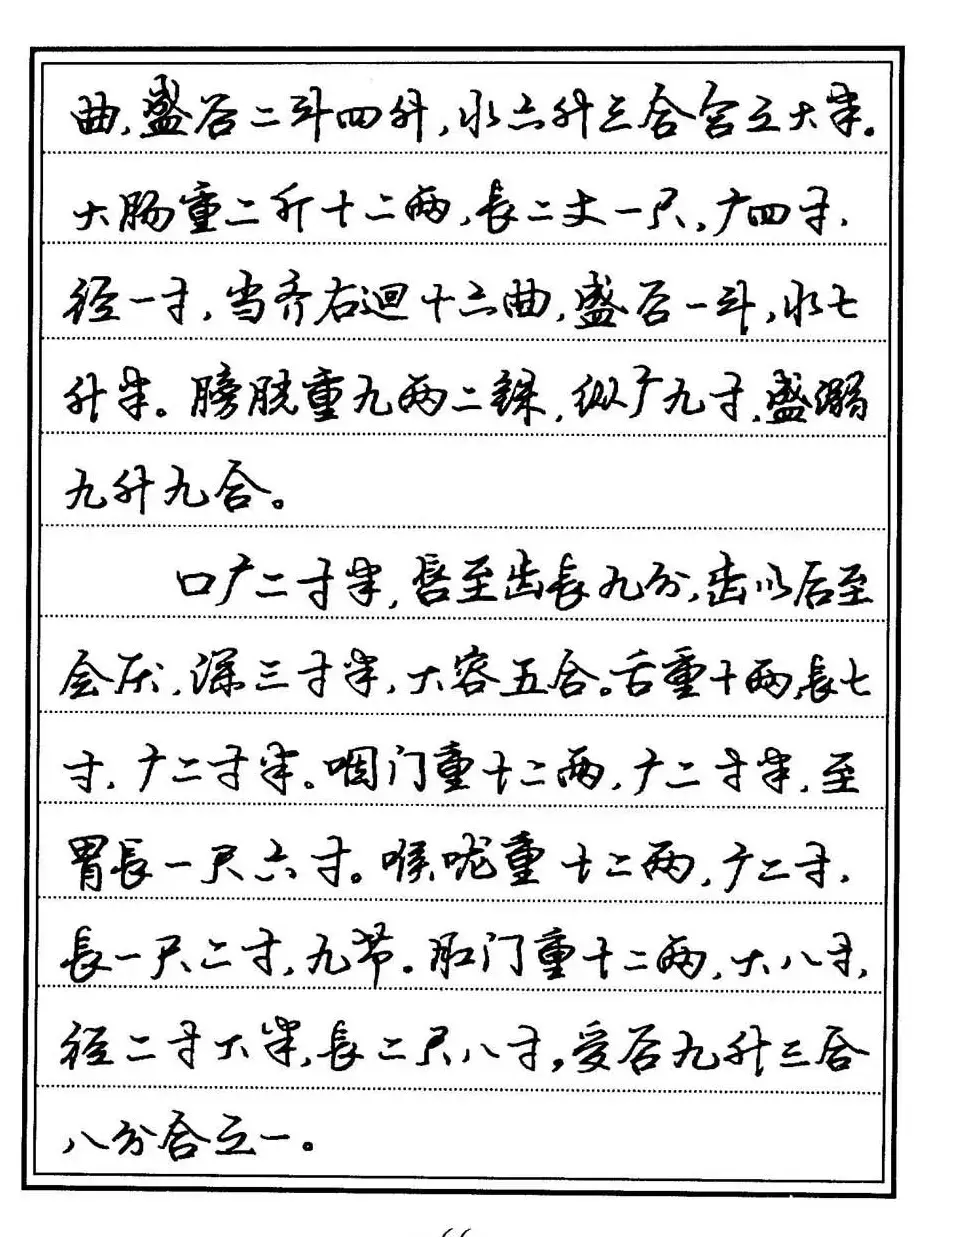 曲,盛谷二斗四升,水六升三合合之大半。
大肠重二斤十二两,長二丈一尺,广四寸,
径一寸,当齐右迴十六曲,盛谷一斗,水七
升半。膀胱重九两二铢,纵广九寸,盛溺
九升九合。
口广二寸半,唇至齿長九分,齿以后至
会厌,深三寸半,大容五合。舌重十两,長七
寸,广二寸半。咽门重十二两,广二寸半,至
胃長一尺六寸。喉咙重十二两,广二寸,
長一尺二寸,九节。肛门重十二两,大八寸,
径二寸大半,長二尺八寸,受谷九升三合
八分合之一。